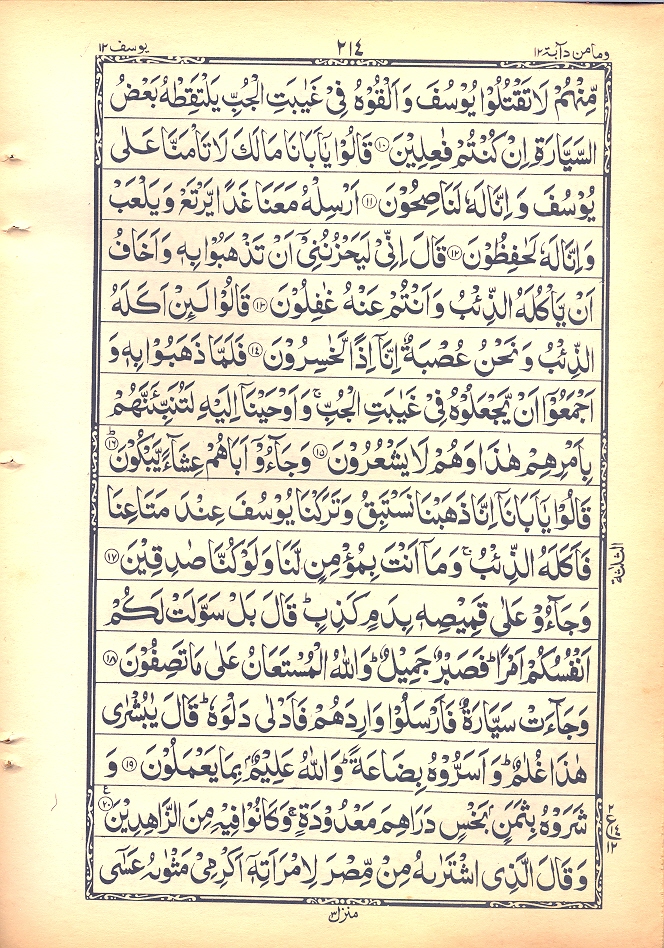 وما من دآبة ١٢ ٢١٤ يوسف ١٢
مِّنْهُمْ لَا تَقْتُلُوْا يُوْسُفَ وَ اَلْقُوْهُ فِیْ غَیٰبَتِ الْجُبِّ یَلْتَقِطْهُ بَعْضُ
السَّیَّارَةِ اِنْ كُنْتُمْ فٰعِلِیْنَ ۝۱۰ قَالُوْا یٰۤاَبَانَا مَالَكَ لَا تَاْمَنَّا عَلٰی
یُوْسُفَ وَ اِنَّا لَهٗ لَنَاصِحُوْنَ ۝۱۱ اَرْسِلْهُ مَعَنَا غَدًا یَّرْتَعْ وَ یَلْعَبْ
وَ اِنَّا لَهٗ لَحٰفِظُوْنَ ۝۱۲ قَالَ اِنِّیْ لَیَحْزُنُنِیْۤ اَنْ تَذْهَبُوْا بِهٖ وَ اَخَافُ
اَنْ یَّاْكُلَهُ الذِّئْبُ وَ اَنْتُمْ عَنْهُ غٰفِلُوْنَ ۝۱۳ قَالُوْا لَىِٕنْ اَكَلَهُ
الذِّئْبُ وَ نَحْنُ عُصْبَةٌ اِنَّاۤ اِذًا لَّخٰسِرُوْنَ ۝۱۴ فَلَمَّا ذَهَبُوْا بِهٖ وَ
اَجْمَعُوْۤا اَنْ یَّجْعَلُوْهُ فِیْ غَیٰبَتِ الْجُبِّ ۚ وَ اَوْحَیْنَاۤ اِلَیْهِ لَتُنَبِّئَنَّهُمْ
بِاَمْرِهِمْ هٰذَا وَ هُمْ لَا یَشْعُرُوْنَ ۝۱۵ وَ جَآءُوْۤ اَبَاهُمْ عِشَآءً یَّبْكُوْنَ ؕ۝۱۶
قَالُوْا یٰۤاَبَانَاۤ اِنَّا ذَهَبْنَا نَسْتَبِقُ وَ تَرَكْنَا یُوْسُفَ عِنْدَ مَتَاعِنَا
فَاَكَلَهُ الذِّئْبُ ۚ وَ مَاۤ اَنْتَ بِمُؤْمِنٍ لَّنَا وَ لَوْ كُنَّا صٰدِقِیْنَ ۝۱۷
الثلثة
وَ جَآءُوْ عَلٰی قَمِیْصِهٖ بِدَمٍ كَذِبٍ ؕ قَالَ بَلْ سَوَّلَتْ لَكُمْ
اَنْفُسُكُمْ اَمْرًا ؕ فَصَبْرٌ جَمِیْلٌ ؕ وَ اللّٰهُ الْمُسْتَعَانُ عَلٰی مَا تَصِفُوْنَ ۝۱۸
وَ جَآءَتْ سَیَّارَةٌ فَاَرْسَلُوْا وَارِدَهُمْ فَاَدْلٰی دَلْوَهٗ ؕ قَالَ یٰبُشْرٰی
هٰذَا غُلٰمٌ ؕ وَ اَسَرُّوْهُ بِضَاعَةً ؕ وَ اللّٰهُ عَلِیْمٌۢ بِمَا یَعْمَلُوْنَ ۝۱۹ وَ
شَرَوْهُ بِثَمَنٍۭ بَخْسٍ دَرَاهِمَ مَعْدُوْدَةٍ ۚ وَ كَانُوْا فِیْهِ مِنَ الزَّاهِدِیْنَ ۝۲۰ع
٢ ع ١٤ ١٢
وَ قَالَ الَّذِی اشْتَرٰىهُ مِنْ مِّصْرَ لِامْرَاَتِهٖۤ اَكْرِمِیْ مَثْوٰىهُ عَسٰۤی
منزل ٣